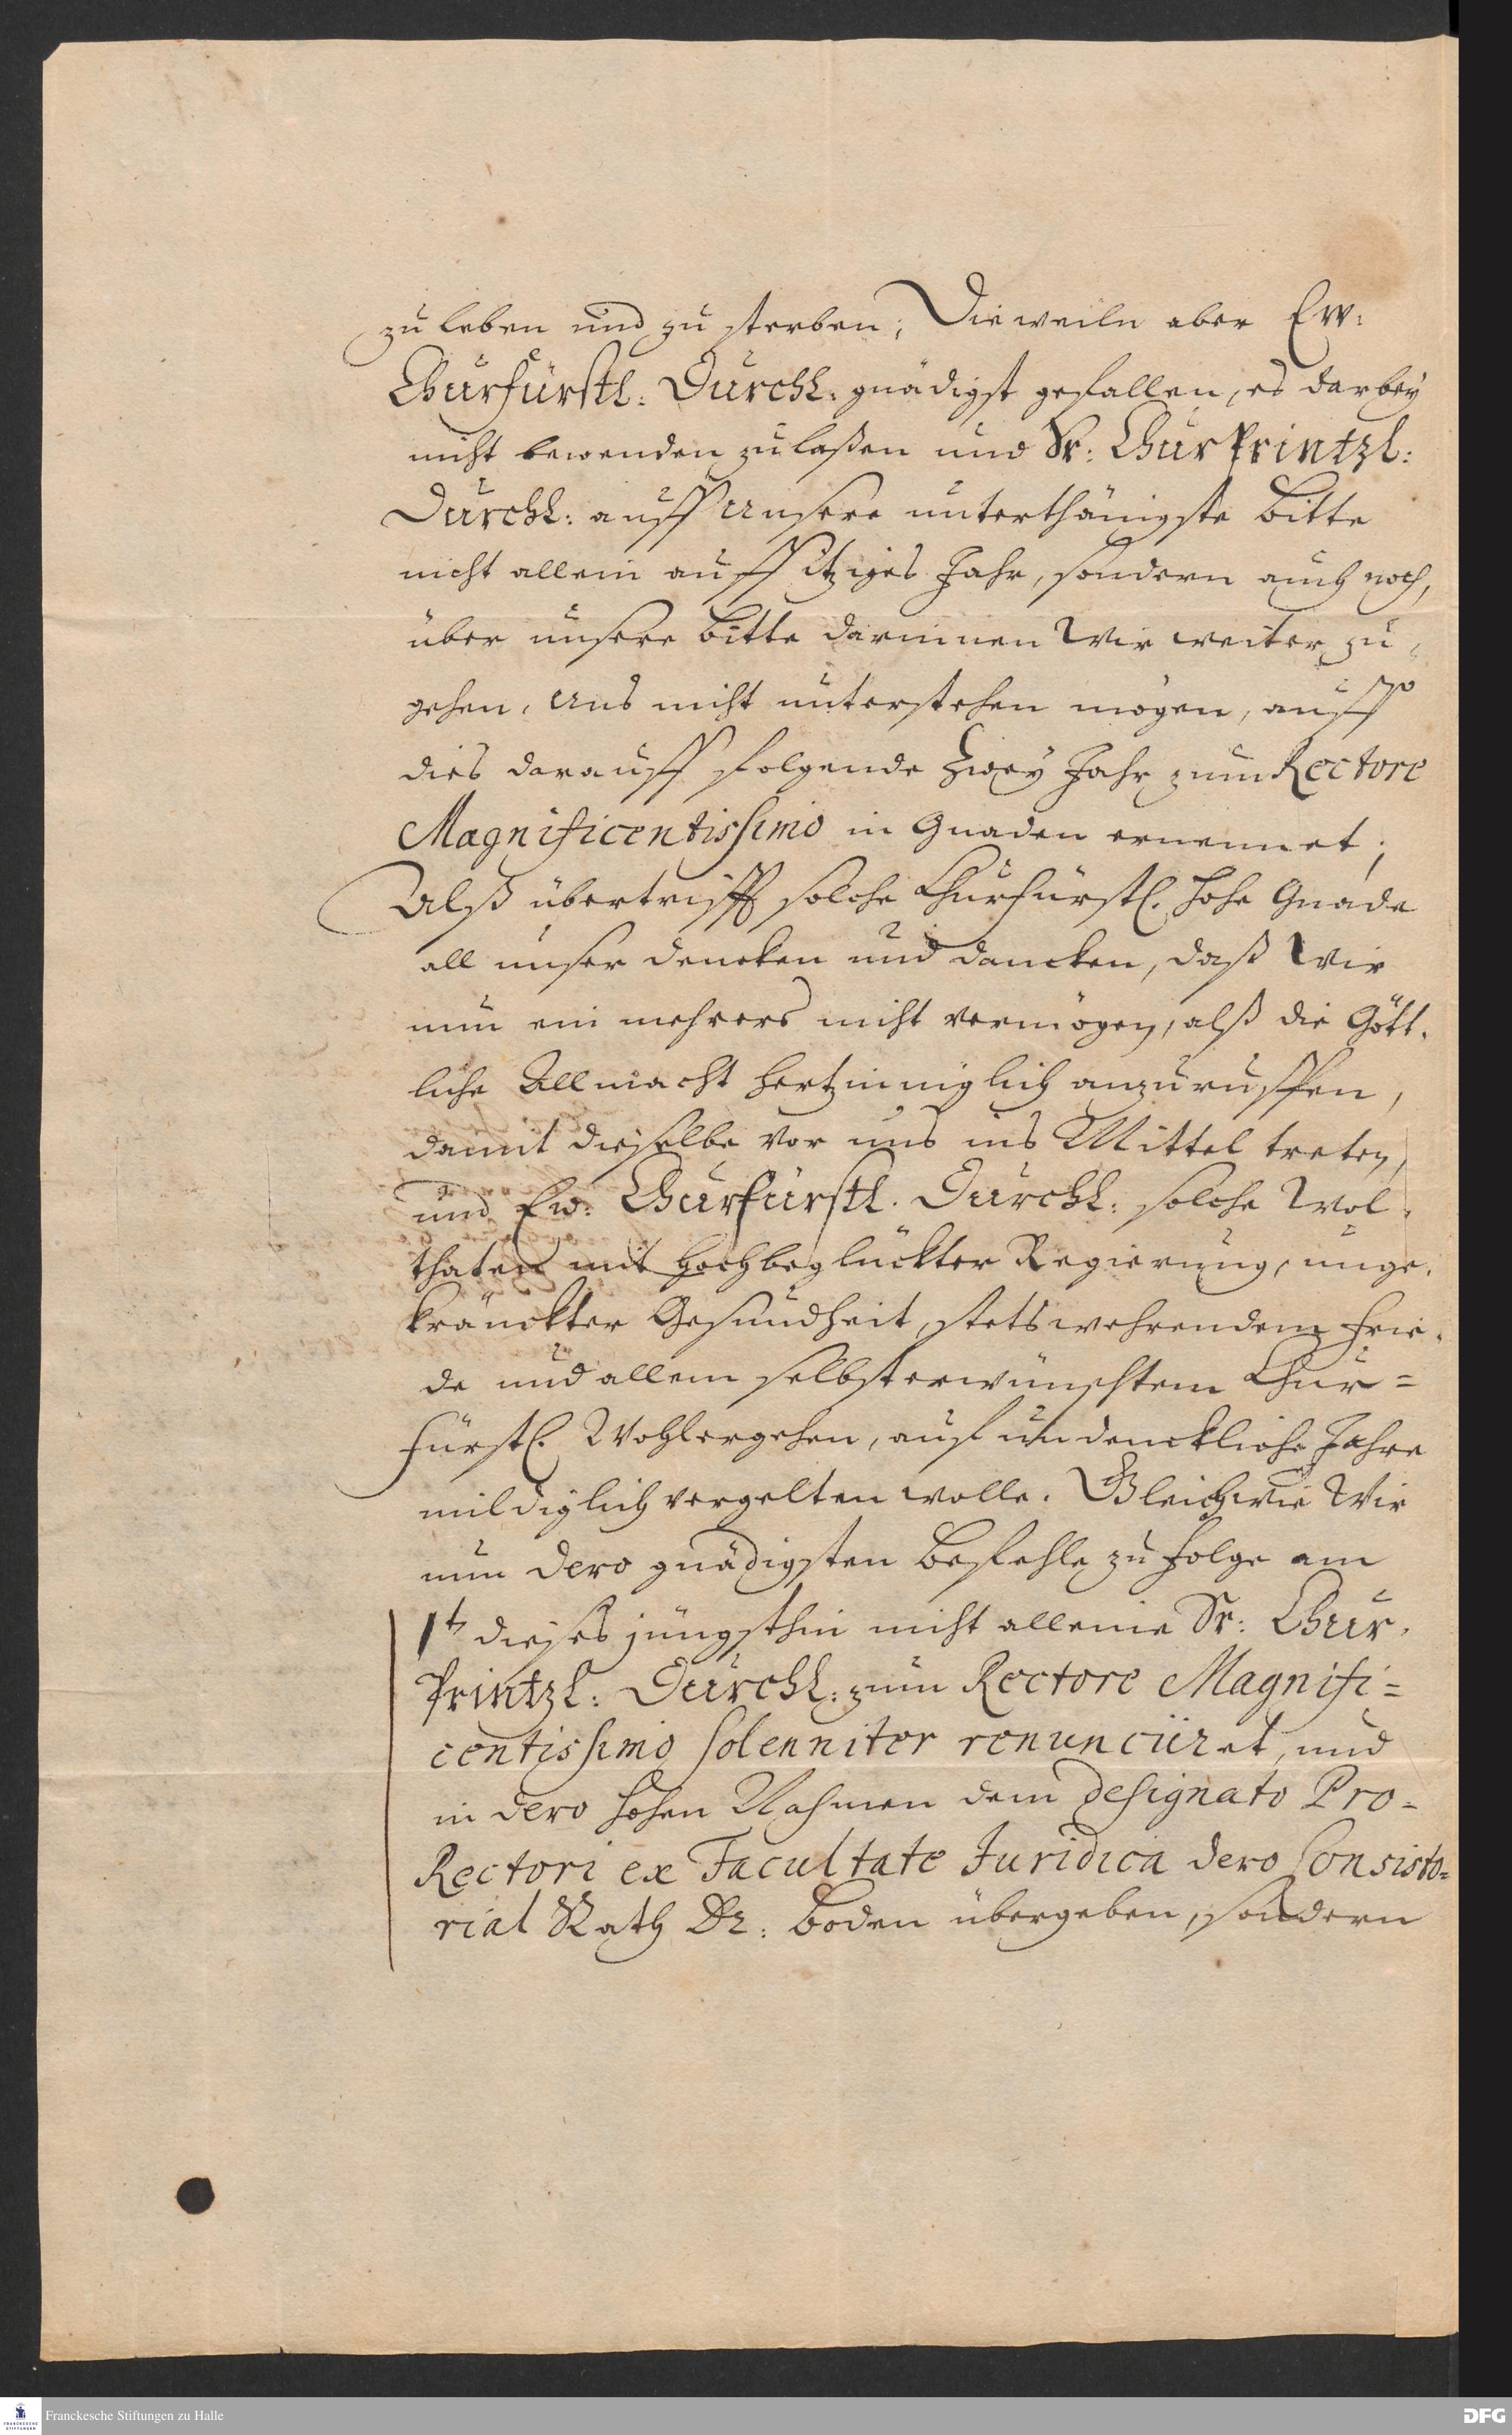 zu leben und zu sterben; Dieweiln aber Ew:
Churfürstl: Durchl: gnädigst gefallen, es darbey
nicht bewenden zulaßen und Sr: ChurPrintzl:
Durchl: auff Unsere unterthänigste Bitte
nicht allein auff itziges Jahr, sondern auch noch,
über unsere Bitte darinnen Wir weiter zu
gehen, Uns nicht unterstehen mögen, auff
dies darauff folgende zwey Jahr zum Rectore
Magnificentissimo in Gnaden ernennet;
Alß übertrifft solche Churfürstl. hohe Gnade
all unser dencken und dancken, daß Wir
nun ein mehrers nicht vermögen, alß die Gött-
liche Allmacht hertzinniglich anzuruffen,
damit dieselbe vor uns ins Mittel treten,
und Ew: Churfürstl. Durchl: solche Wol-
thaten mit hochbeglückter Regierung, unge-
kränckter Gesundheit, stets wehrendem Frie-
de und allem selbsterwünschtem Chur=
fürstl. Wohlergehen, auf undenckliche Jahre
mildiglich vergelten wolle. Gleichwie Wir
nun dero gnädigsten Befehle zu folge am
dieses jüngsthin nicht alleine Sr: Chur-
Printzl: Durchl: zum Rectore Magnifi=
centissimo solenniter renunciiret, und
in dero hohen Nahmen dem designato Pro-
Rectori ex Facultate Juridica dero Consisto=
rial Rath Dr: Boden übergeben, sondern
Franckesche Stiftungen zu Halle
FRANCKESCHE STIFTUNGEN
DFG